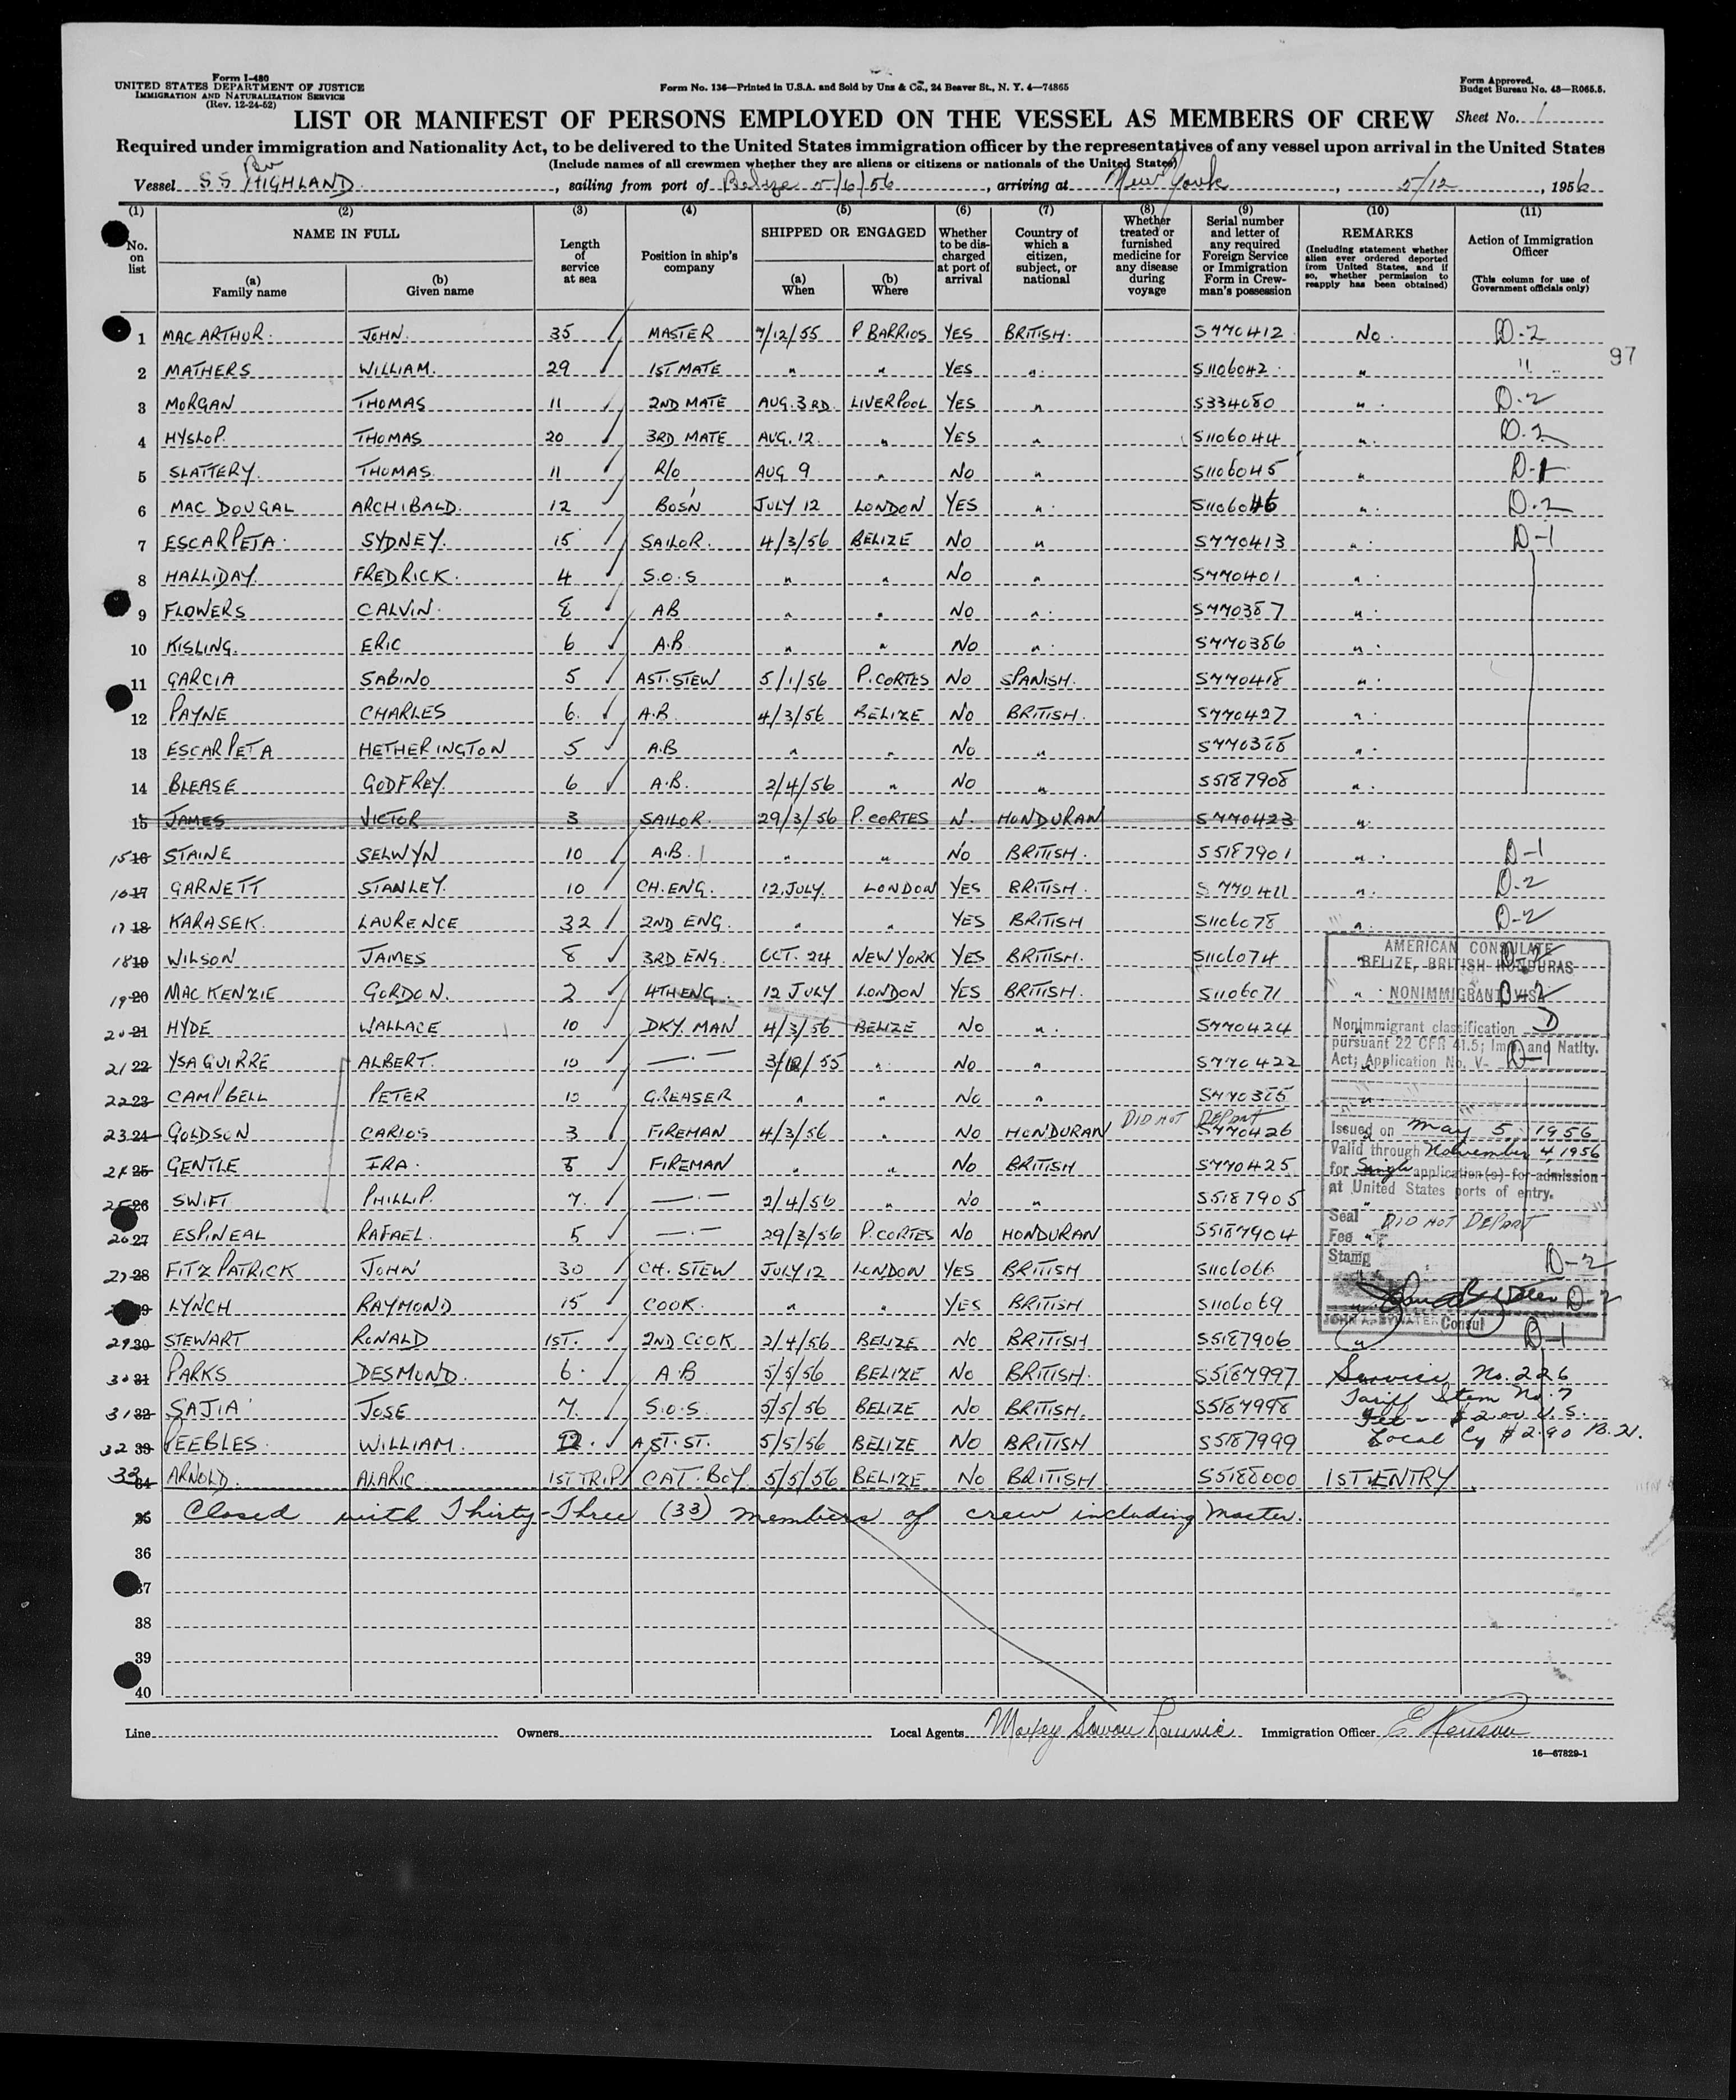 Form I-480
UNITED STATES DEPARTMENT OF JUSTICE
IMMIGRATION AND NATURALIZATION SERVICE
(Rev. 12-24-52)
Form No. 136—Printed in U.S.A. and Sold by Unz & Co., 24 Beaver St., N. Y. 4—74865
Form Approved.
Budget Bureau No. 43—R065.5.
LIST OR MANIFEST OF PERSONS EMPLOYED ON THE VESSEL AS MEMBERS OF CREW Sheet No. 1
Required under immigration and Nationality Act, to be delivered to the United States immigration officer by the representatives of any vessel upon arrival in the United States
(Include names of all crewmen whether they are aliens or citizens or nationals of the United States)
Br
Vessel SS HIGHLAND, sailing from port of Belize 5/6/56, arriving at New York, 5/12, 1956
(1) (2) (3) (4) (5) (6) (7) (8) (9) (10) (11)
No. on list
NAME IN FULL
(a) Family name
(b) Given name
Length of service at sea
Position in ship's company
SHIPPED OR ENGAGED
(a) When
(b) Where
Whether to be discharged at port of arrival
Country of which a citizen, subject, or national
Whether treated or furnished medicine for any disease during voyage
Serial number and letter of any required Foreign Service or Immigration Form in Crewman's possession
REMARKS
(Including statement whether alien ever ordered deported from United States, and if so, whether permission to reapply has been obtained)
Action of Immigration Officer
(This column for use of Government officials only)
1 MAC ARTHUR. JOHN. 35 ✓ MASTER 7/12/55 P BARRIOS YES BRITISH. S770412 No. D-2
97
2 MATHERS WILLIAM. 29 ✓ 1ST MATE " " YES " S1106042 " "
3 MORGAN THOMAS 11 ✓ 2ND MATE AUG. 3RD. LIVERPOOL YES " S334080 " D-2
4 HYSLOP. THOMAS 20 ✓ 3RD MATE AUG. 12. " YES " S1106044 " D-2
5 SLATTERY. THOMAS. 11 ✓ R/O AUG 9 " NO " S1106045 " D-1
6 MAC DOUGAL ARCHIBALD. 12 ✓ BOS'N JULY 12 LONDON YES " S1106046 " D-2
7 ESCARPETA. SYDNEY. 15 ✓ SAILOR. 4/3/56 BELIZE NO " S770413 " D-1
8 HALLIDAY. FREDRICK. 4 ✓ S.O.S " " NO " S770401 "
9 FLOWERS CALVIN. 8 ✓ AB " " NO " S770387 "
10 KISLING. ERIC 6 ✓ A.B " " NO " S770386 "
11 GARCIA SABINO 5 ✓ AST. STEW 5/1/56 P. CORTES NO SPANISH. S770418 "
12 PAYNE CHARLES 6. ✓ A.B. 4/3/56 BELIZE NO BRITISH. S770427 "
13 ESCARPETA HETHERINGTON 5 ✓ A.B " " NO " S770388 "
14 BLEASE GODFREY. 6 ✓ A.B. 2/4/56 " NO " S5187908 "
15 JAMES VICTOR 3 SAILOR. 29/3/56 P. CORTES N. HONDURAN S770423 "
15 16 STAINE SELWYN 10 ✓ A.B. " " NO BRITISH. S5187901 " D-1
16 17 GARNETT STANLEY. 10 ✓ CH. ENG. 12. JULY. LONDON YES BRITISH. S770411 " D-2
17 18 KARASEK. LAURENCE 32 ✓ 2ND ENG. " " YES BRITISH S1106078 " D-2
18 19 WILSON JAMES 8 ✓ 3RD ENG. OCT. 24 NEW YORK YES BRITISH. S1106074 " D-2
19 20 MAC KENZIE GORDON. 2 ✓ 4TH ENG. 12 JULY LONDON YES BRITISH. S1106071 " D-2
20 21 HYDE WALLACE 10 ✓ DKY. MAN 4/3/56 BELIZE NO " S770424 "
21 22 YSAGUIRRE ALBERT. 10 ✓ —.— 3/12/55 " NO " S770422 " D-1
22 23 CAMPBELL PETER 10 ✓ GREASER " " NO " S770385 "
DID NOT DEPART
23 24 GOLDSON CARLOS 3 ✓ FIREMAN 4/3/56 " NO HONDURAN S770426
24 25 GENTLE IRA. 8 ✓ FIREMAN " " NO BRITISH S770425
25 26 SWIFT PHILLIP. 7. ✓ —.— 2/4/56 " NO " S5187905 "
26 27 ESPINEAL RAFAEL. 5 ✓ —.— 29/3/56 P. CORTES NO HONDURAN S5187904 " DID NOT DEPART
27 28 FITZPATRICK JOHN 30 ✓ CH. STEW JULY 12 LONDON YES BRITISH S1106066 " D-2
LYNCH RAYMOND 15 ✓ COOK. " " YES BRITISH S1106069 " D-2
29 30 STEWART RONALD 1ST. ✓ 2ND COOK 2/4/56 BELIZE NO BRITISH S5187906 " D-1
30 31 PARKS DESMOND. 6. ✓ A B 5/5/56 BELIZE NO BRITISH. S5187997
31 32 SAJIA JOSE 7. ✓ S.O.S. 5/5/56 BELIZE NO BRITISH. S5187998
32 33 PEEBLES. WILLIAM. 12. ✓ AST. ST. 5/5/56 BELIZE NO BRITISH S5187999
33 34 ARNOLD. ALARIC 1ST TRIP ✓ CAT. BOY 5/5/56 BELIZE NO BRITISH S5188000 1ST. ENTRY
AMERICAN CONSULATE
BELIZE, BRITISH HONDURAS
NONIMMIGRANT VISA
Nonimmigrant classification D
pursuant 22 CFR 41.5; Imm. and Natlty.
Act; Application No. V-
Issued on May 5, 1956
Valid through November 4, 1956
for Single application(s) for admission
at United States ports of entry.
Seal
Fee
Stamp
JOHN A. BYWATER Consul
Service No. 226
Tariff Item No. 7
Fee - $2.00 U.S.
Local Cy $2.90 B.H.
35 Closed with Thirty-Three (33) members of crew including Master.
36
37
38
39
40
Line Owners Local Agents Immigration Officer
16—67829-1